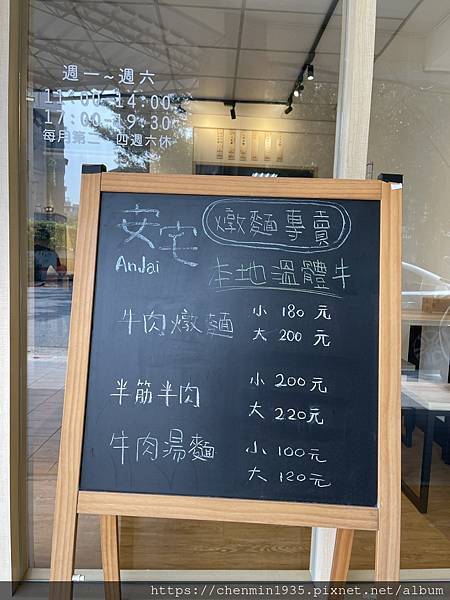 週一~週六
11:00-14:00
17:00-19:30
每月第二、四週六休
安宅
AnJai
燉麵專賣
本地溫體牛
牛肉燉麵
小 180 元
大 200 元
半筋半肉
小 200元
大 220元
牛肉湯麵
小 100元
大 120元
https://chenmin1935.pixnet.net/album